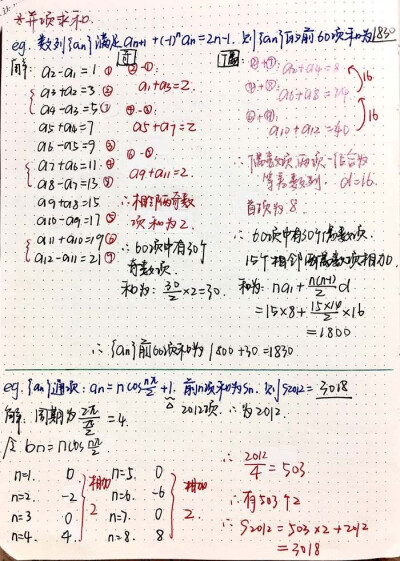 *并项求和.
eg. 数列{an}满足an+1+(-1)ⁿan=2n-1. 则{an}的前60项和为1830
解: a2-a1=1 ①
a3+a2=3 ②
a4-a3=5 ③
a5+a4=7
a6-a5=9 ⑤
a7+a6=11 ⑥
a8-a7=13 ⑦
a9+a8=15
a10-a9=17 ⑨
a11+a10=19 ⑩
a12-a11=21
奇
②-①:
a1+a3=2.
a5+a7=2
a9+a11=2.
∴相邻两奇数
项和为2.
∴60项中有30个
奇数项.
和为: 30/2×2=30.
偶
②+③: a2+a4=8
a6+a8=24
a10+a12=40
16
16
∴偶数项两项一组合为
等差数列. d=16.
首项为8.
∴60项中有30个偶数项.
15个相邻两偶数项相加.
和为: na1+n(n-1)/2 d
=15×8+15×14/2×16
=1800
∴{an}前60项和为1800+30=1830
eg. {an}通项: an=ncos nπ/2+1. 前n项和为Sn. 则S2012=3018
解: 周期为2π/(π/2)=4.
2012项. ∴为2012.
令bn=ncos nπ/2.
n=1. 0
n=2. -2
n=3 0
n=4. 4.
相加
2
n=5. 0
n=6. -6
n=7. 0
n=8. 8
相加
2.
∴2012/4=503
∴有503个2
∴S2012=503×2+2012
=3018